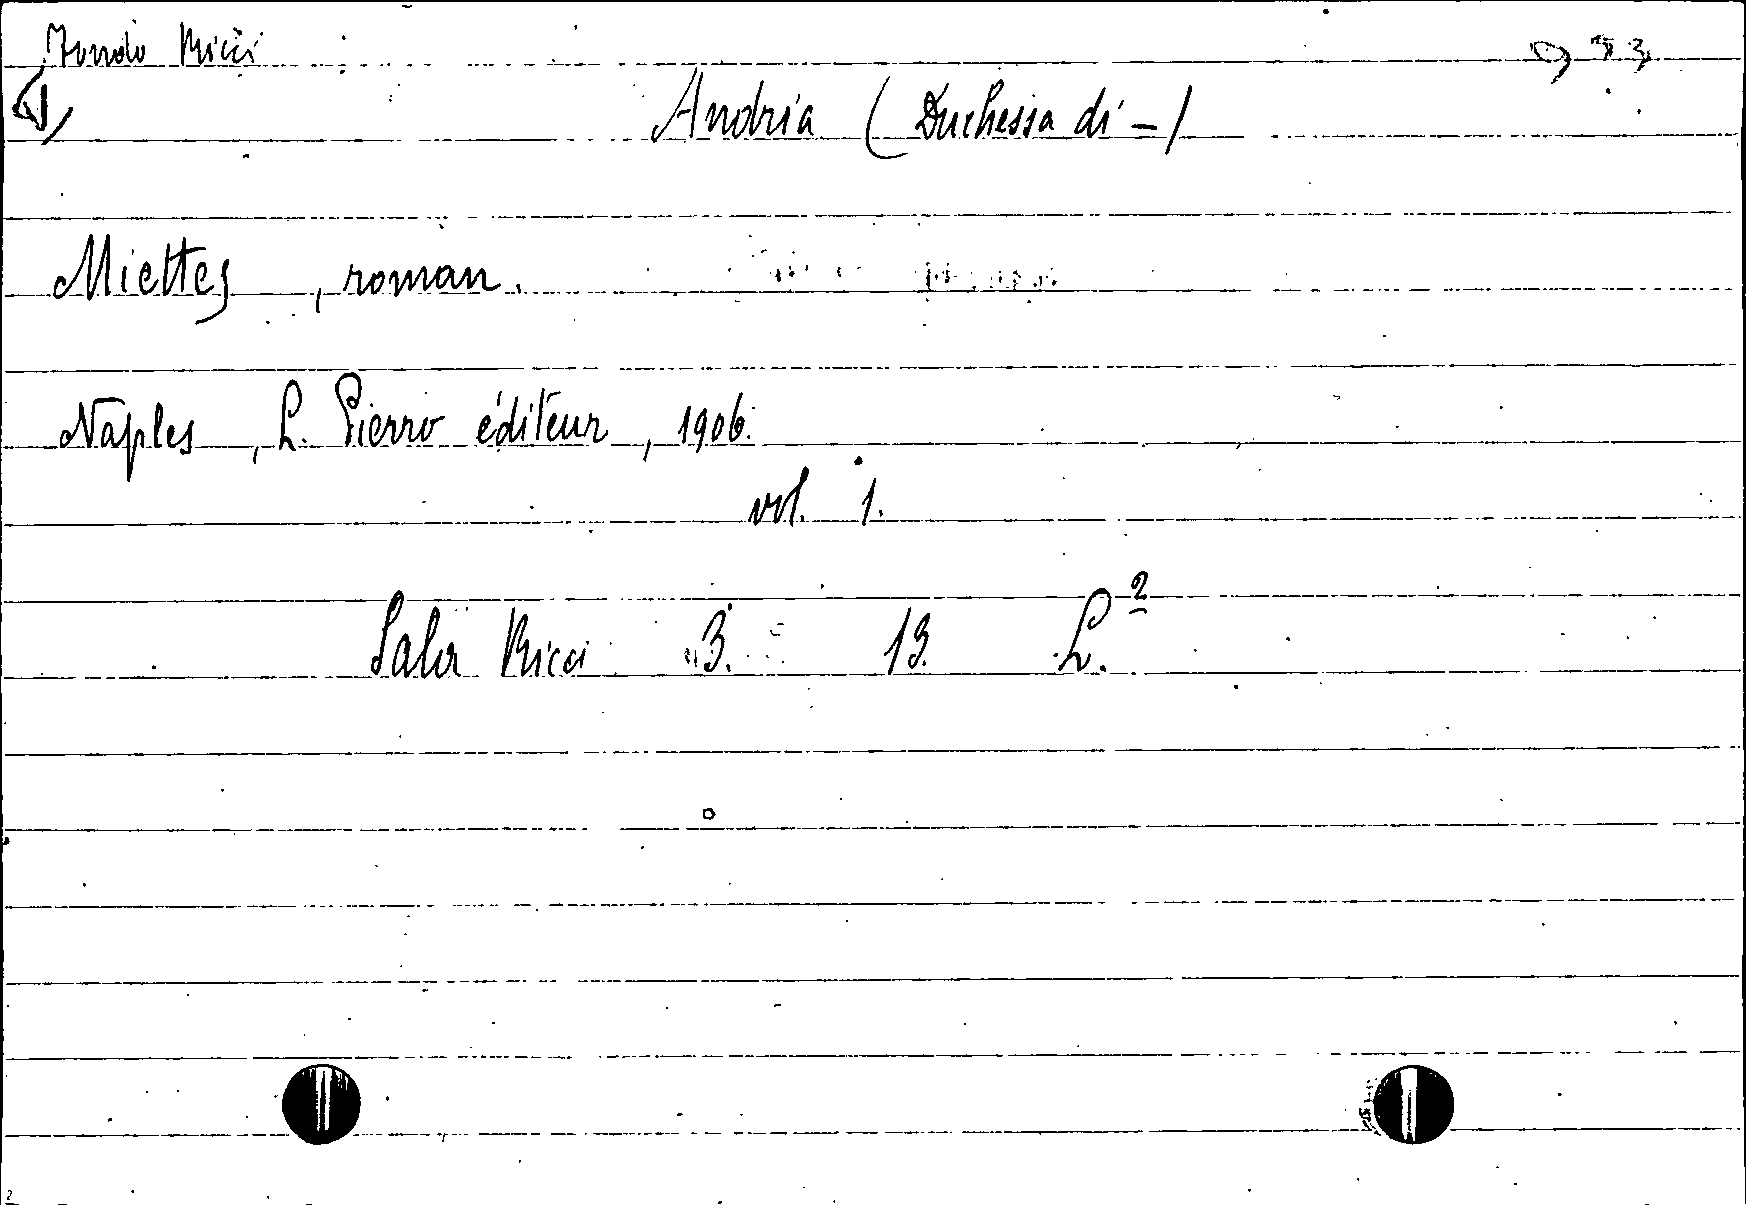 Fondo Ricci
Andria (Duchessa di -)
Miettes, roman.
Naples, L. Pierro éditeur, 1906.
vol. 1.
Sala Ricci 3. 13. L.²